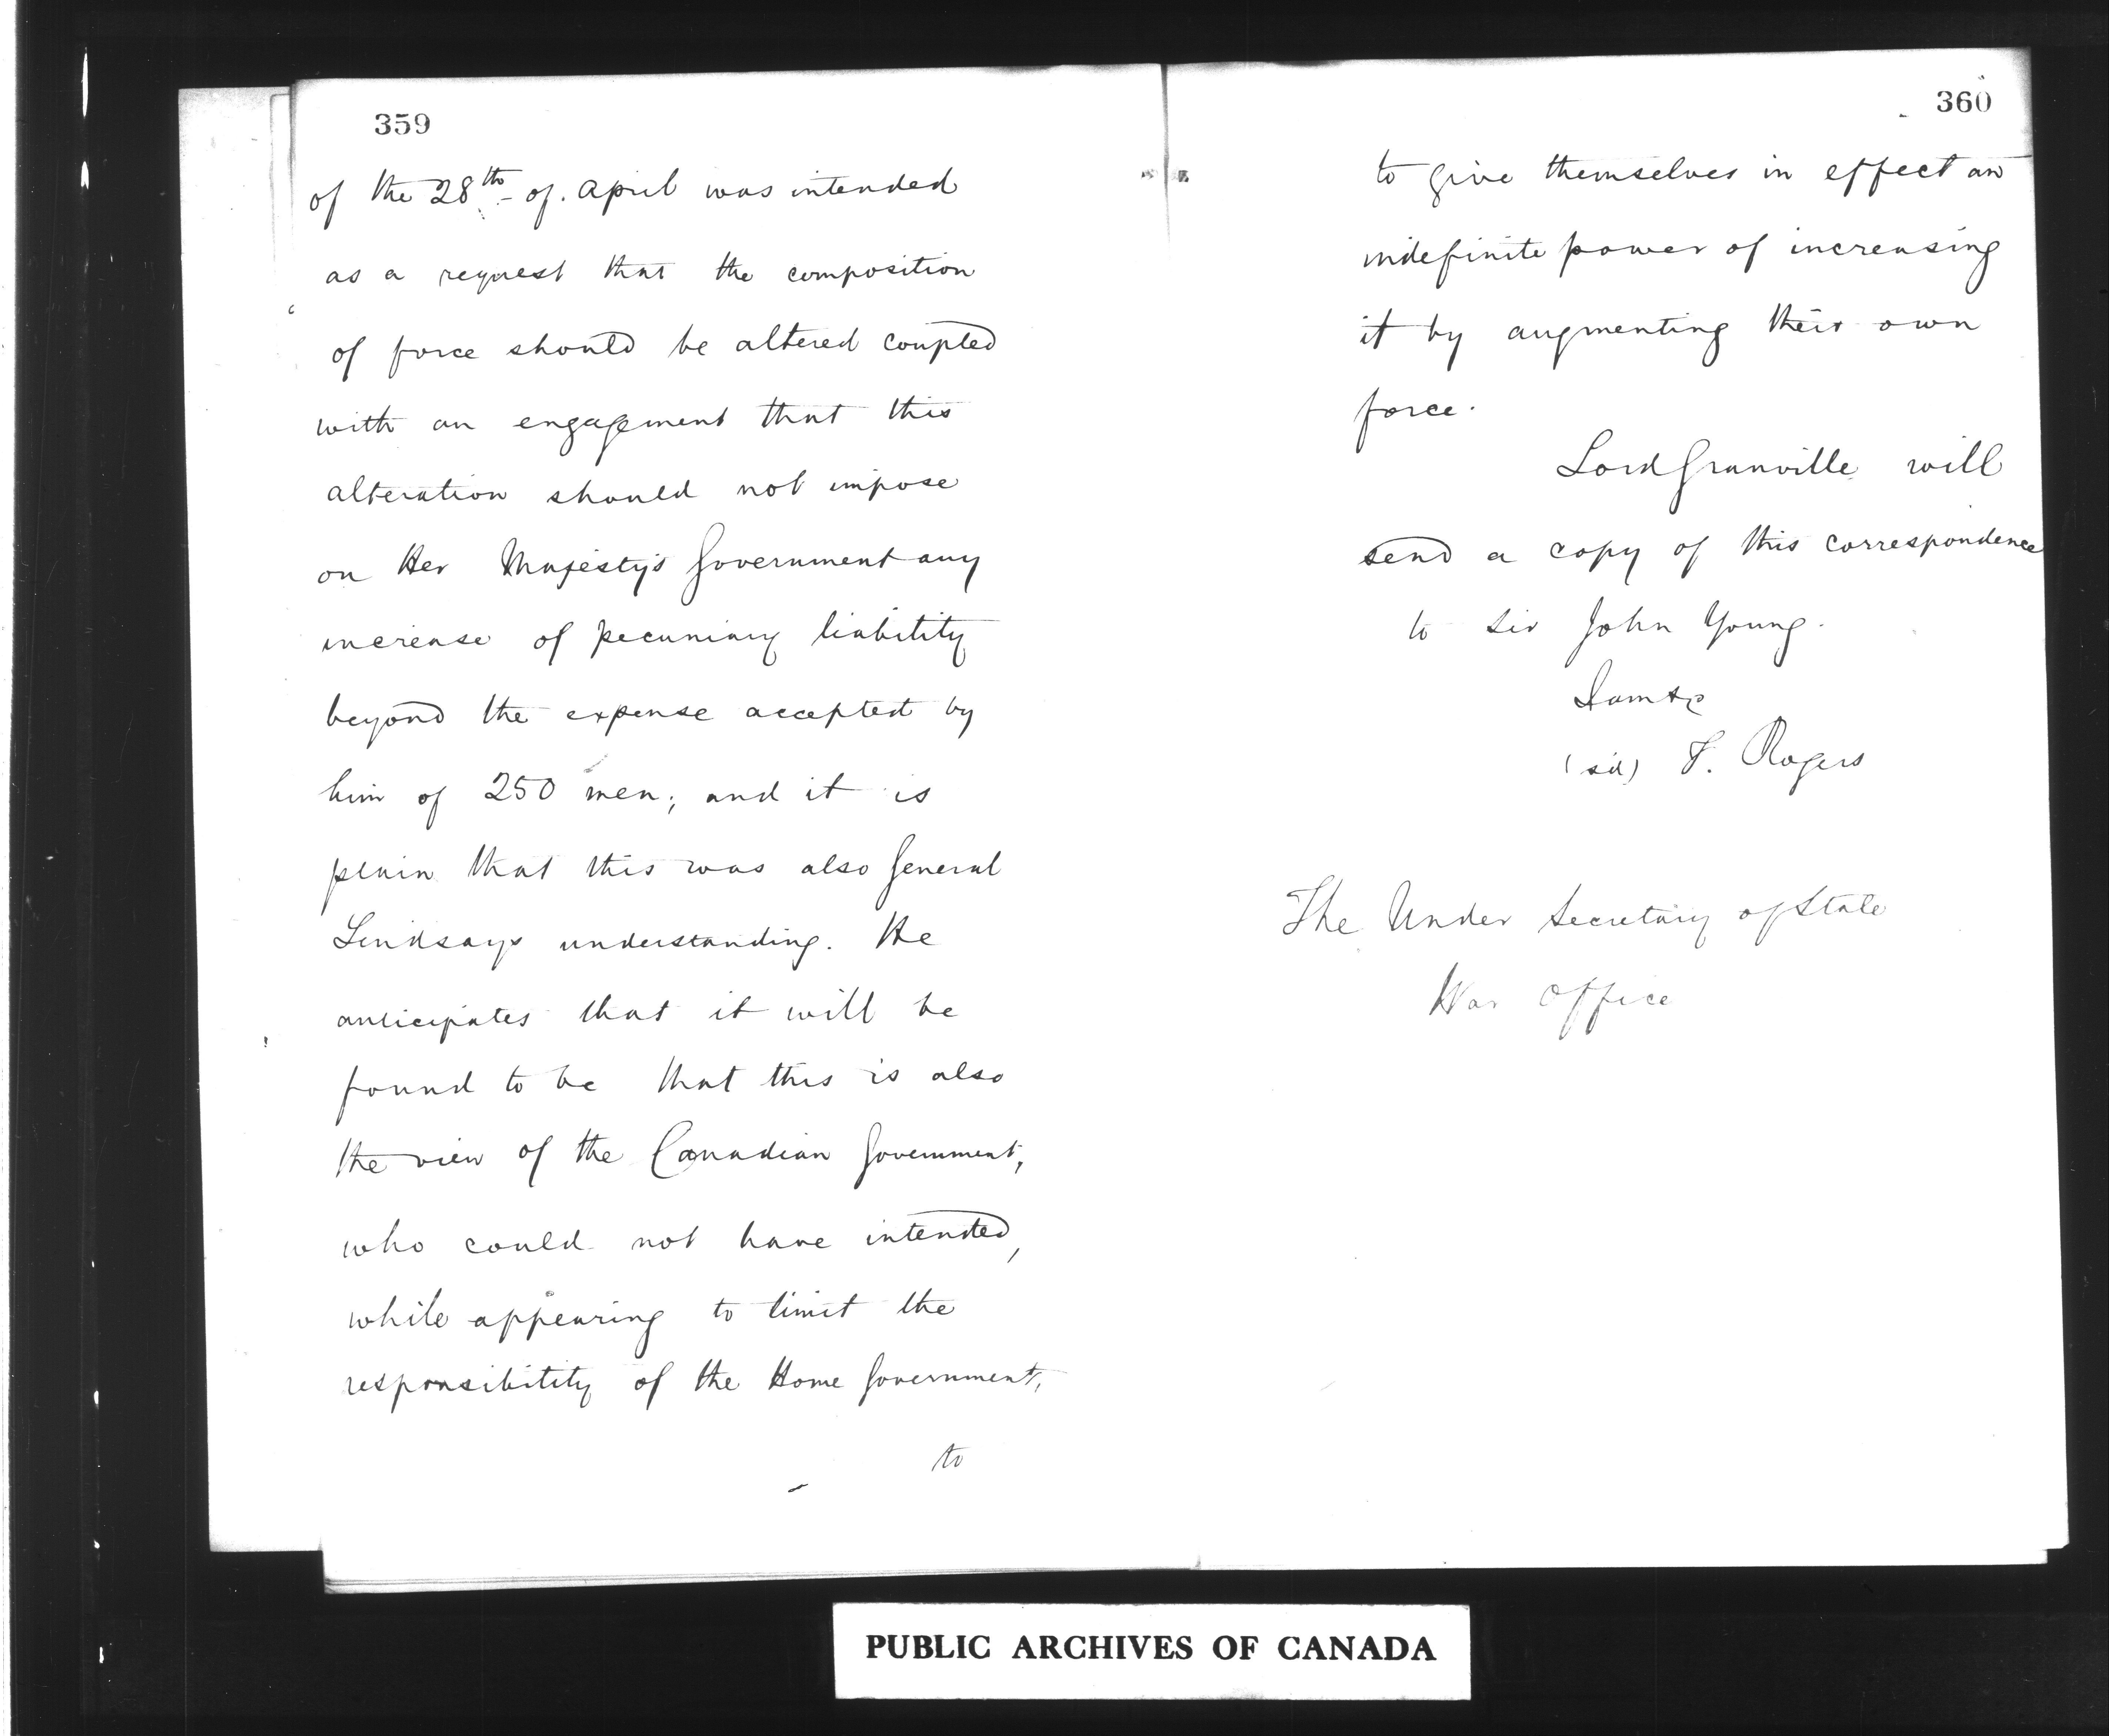 359
of the 28th of. April was intended
as a request that the composition
of force should be altered coupled
with an engagement that this
alteration should not impose
on Her Majesty's Government any
increase of pecuniary liability
beyond the expense accepted by
him of 250 men; and it is
plain that this was also General
Lindsays understanding. He
anticipates that it will be
found to be that this is also
the view of the Canadian Government,
who could not have intended,
while appearing to limit the
responsibility of the Home Government,
to
360
to give themselves in effect an
indefinite power of increasing
it by augmenting their own
force.
Lord Granville will
send a copy of this correspondence
to Sir John Young.
I am &c
(sd) F. Rogers
The Under Secretary of State
War Office
PUBLIC ARCHIVES OF CANADA